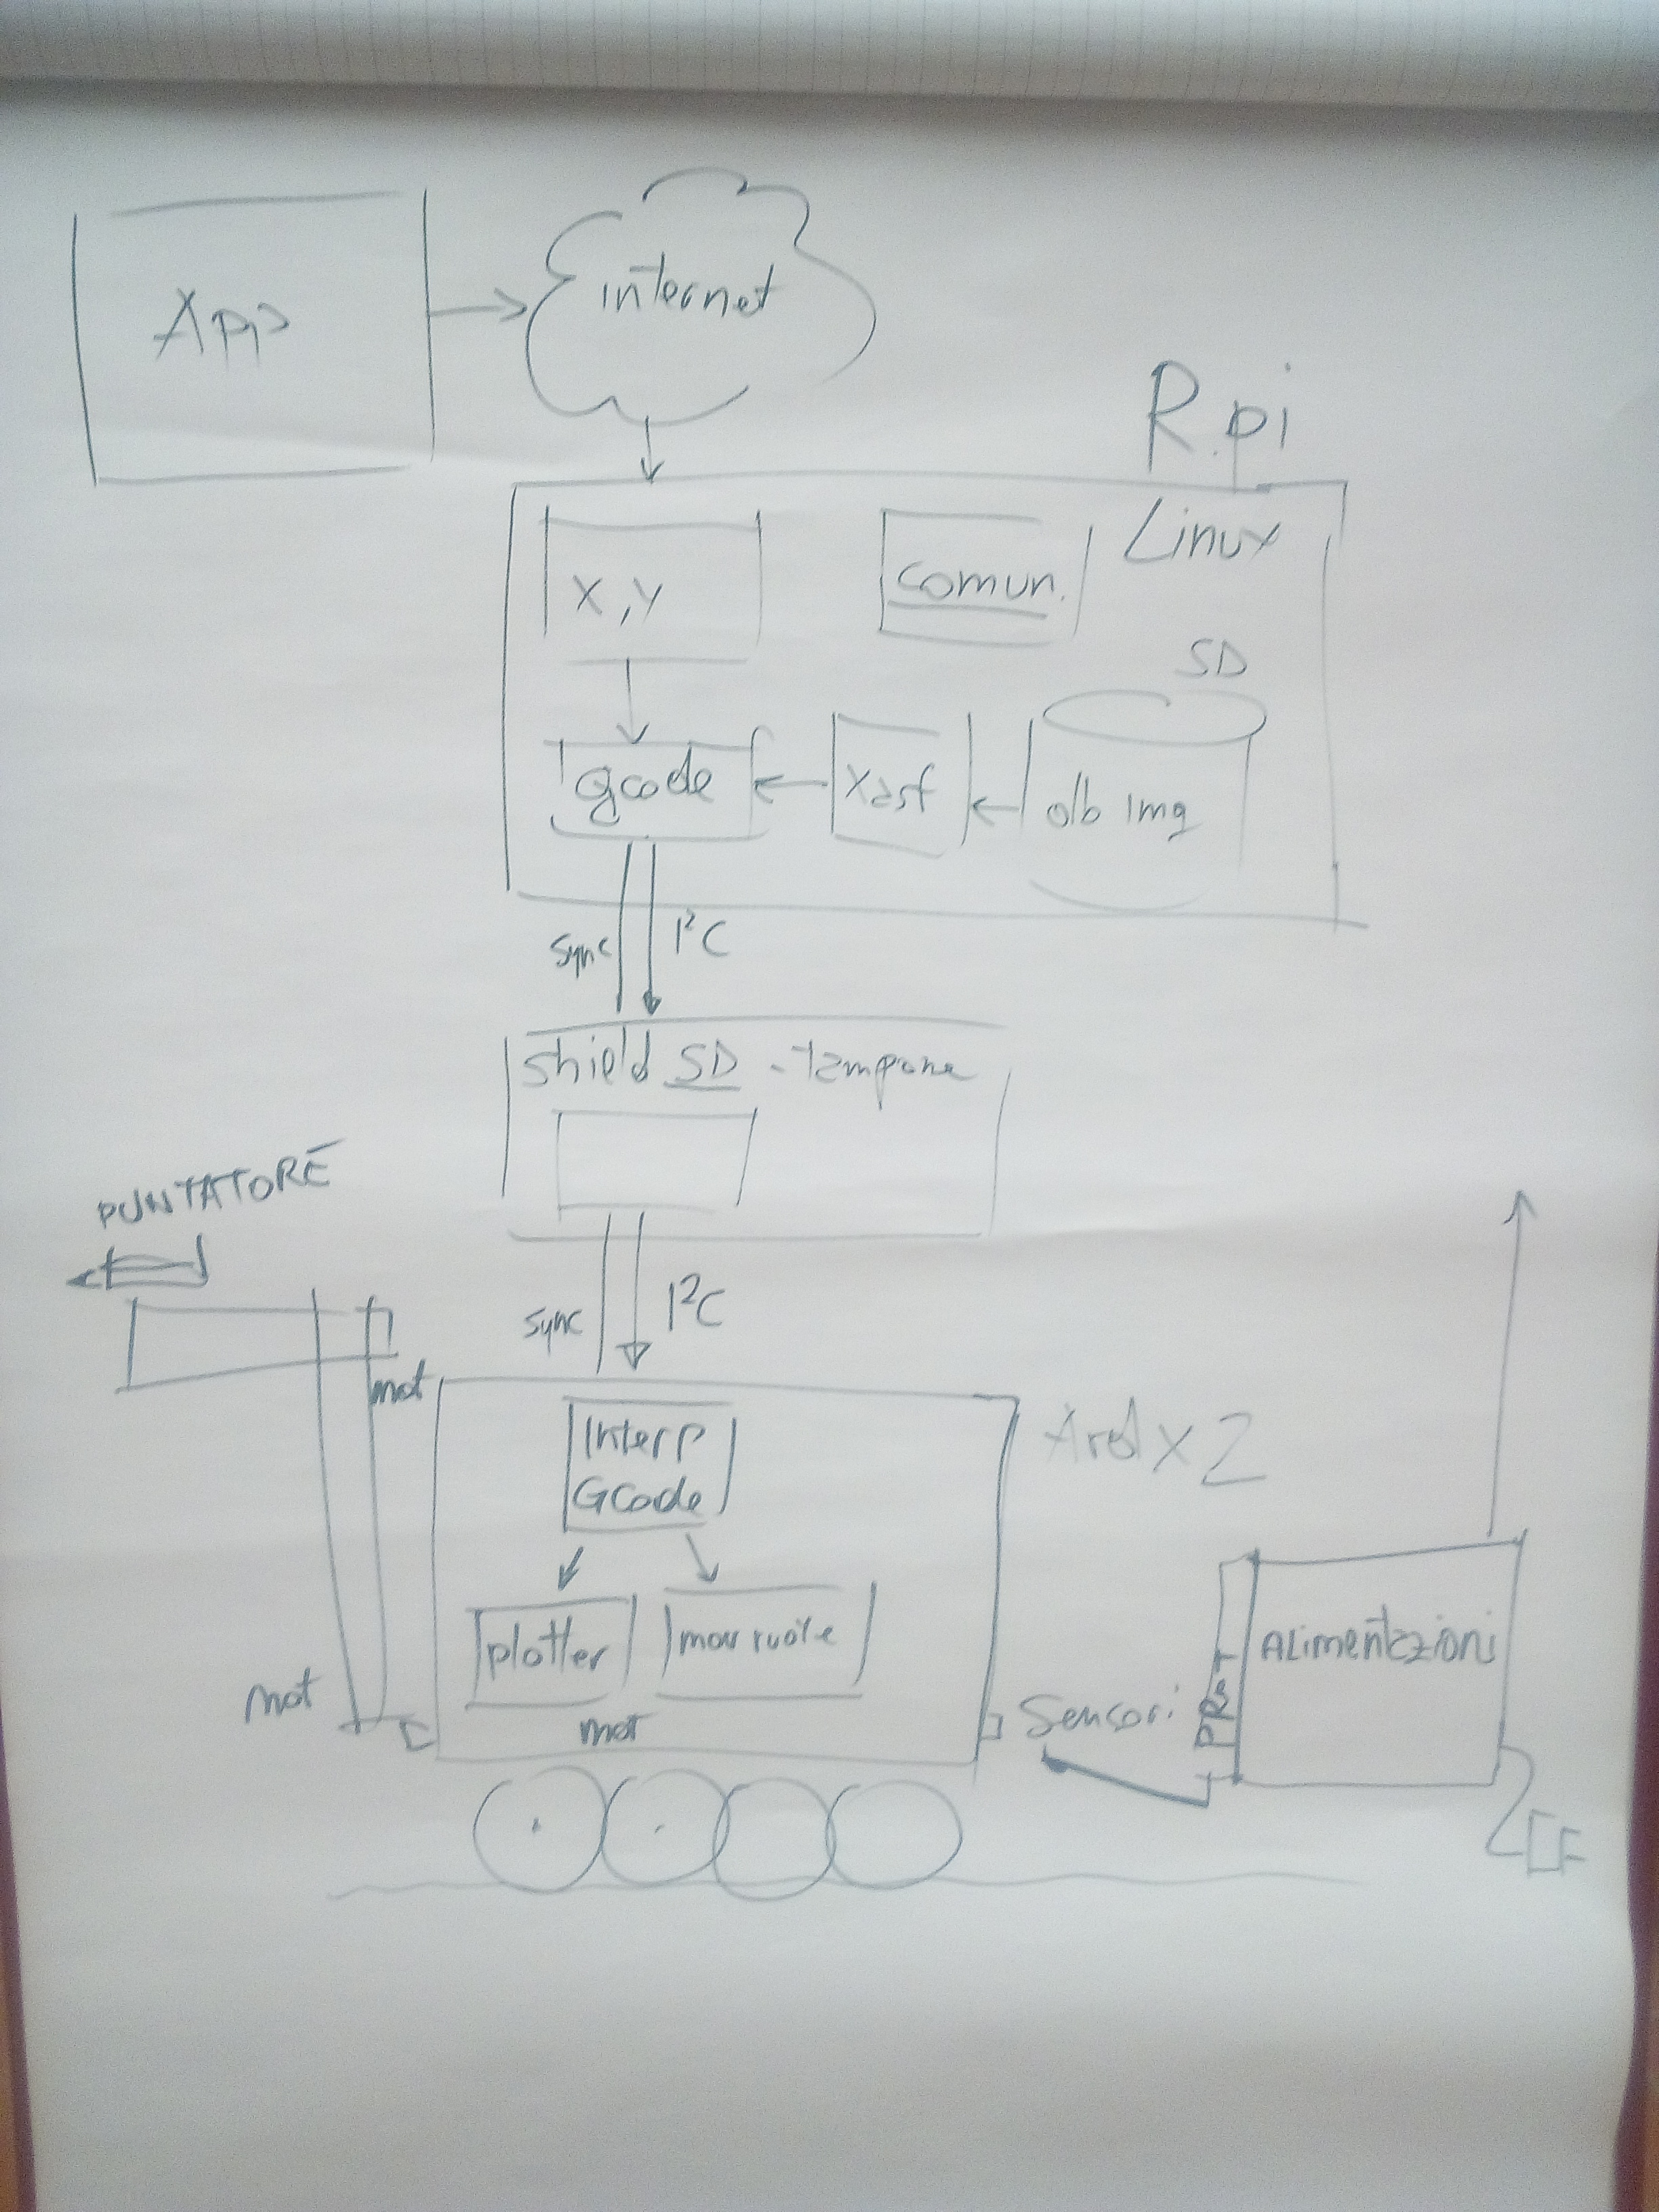 App
internet
R.pi
Linux
x,y
comun.
SD
gcode
db img
sync
I²C
shield SD - tampone
PUNTATORE
sync
I²C
mot
Interp
Gcode
Ard x 2
plotter
mov ruote
mot
mot
Sensori
PROT
Alimentazioni